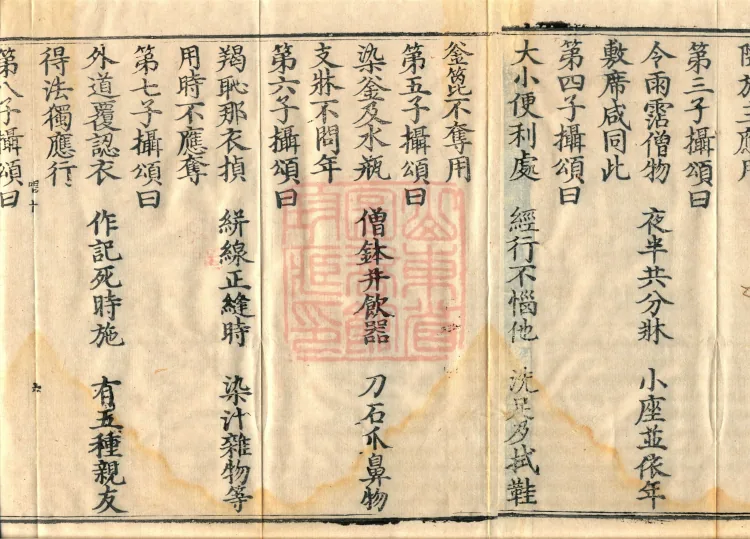 應用
第三子攝頌曰
令雨霑僧物 夜半共分牀 小座並依年
敷席咸同此
第四子攝頌曰
大小便利處 經行不惱他 洗足及拭鞋
釜箆不奪用
第五子攝頌曰
染釜及水瓶 僧鉢并飲器 刀石爪鼻物
支牀不問年
第六子攝頌曰
羯恥那衣揁 絣線正縫時 染汁雜物等
用時不應奪
第七子攝頌曰
外道覆認衣 作記死時施 有五種親友
得法獨應行
第八子攝頌曰